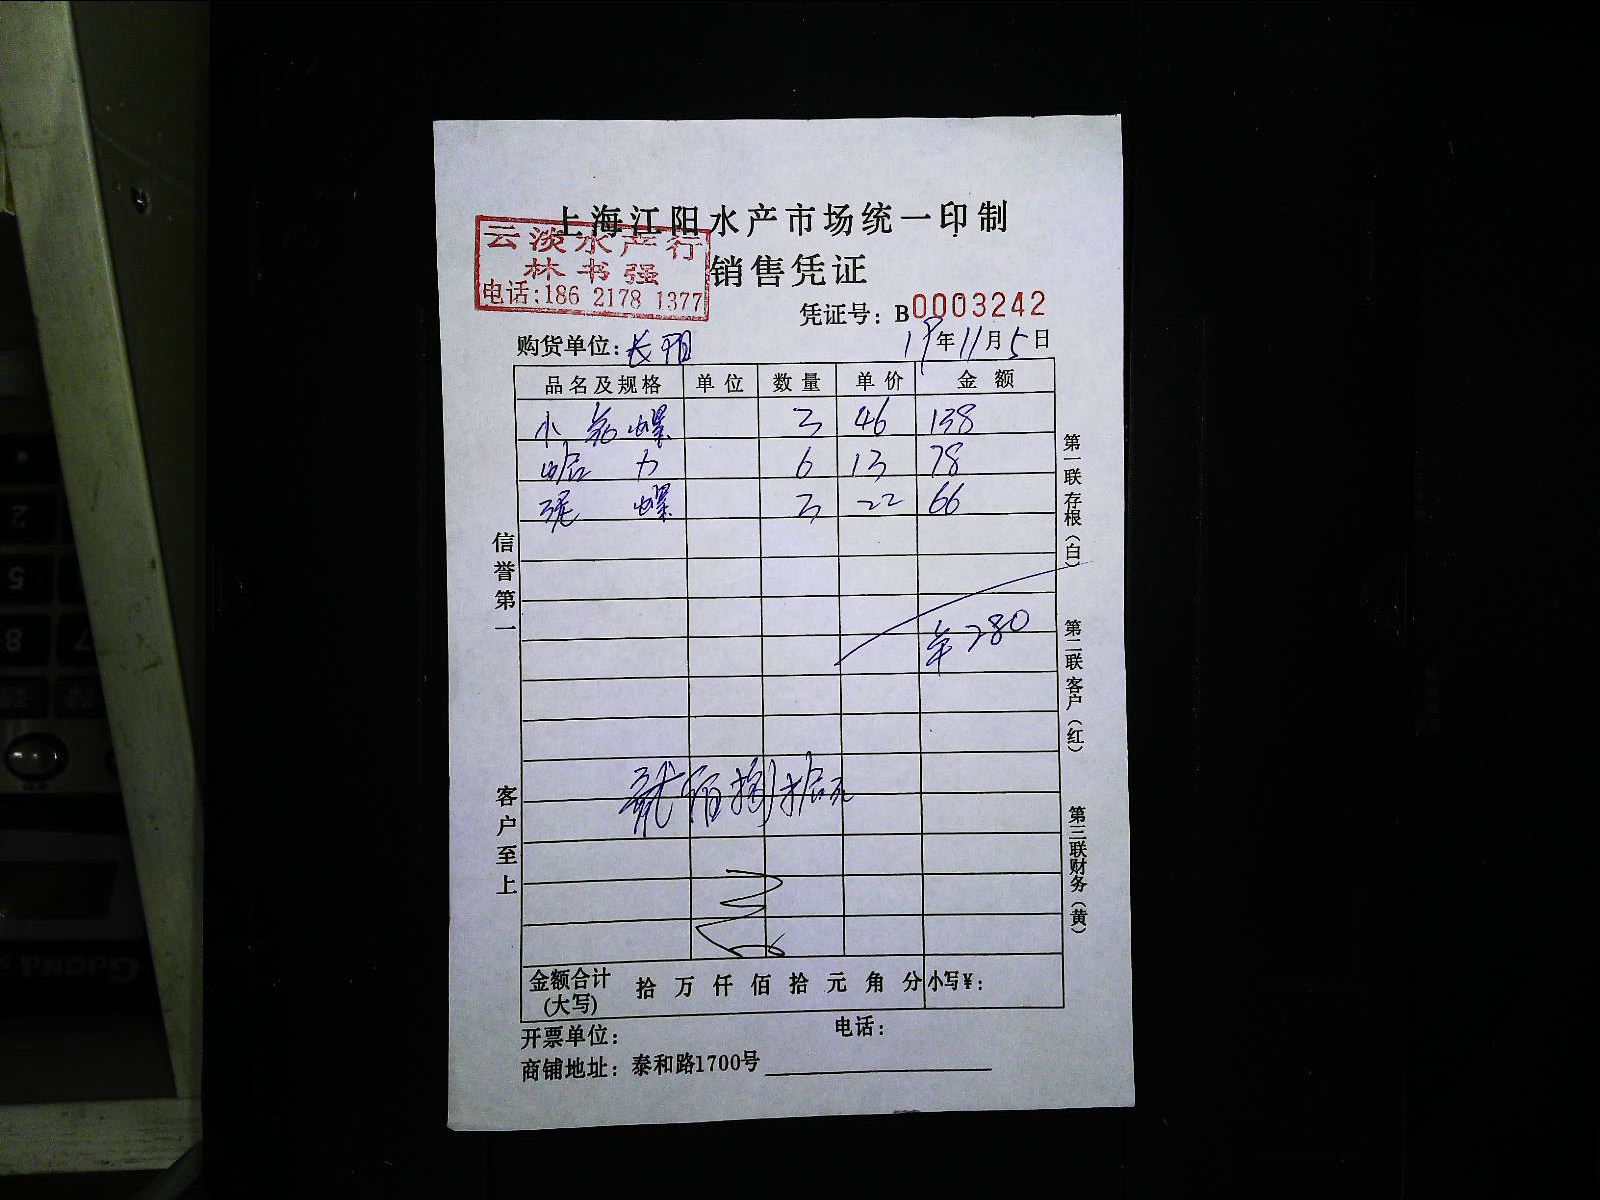 上海江阳水产市场统一印制
云淡水产行
林书强
电话:186 2178 1377
销售凭证
凭证号: B0003242
购货单位: 长阳
19年11月5日
品名及规格 单位 数量 单价 金额
小花螺 3 46 138
哈力 6 13 78
泥螺 3 22 66
280
贰佰捌拾元
金额合计(大写) 拾 万 仟 佰 拾 元 角 分 小写¥:
开票单位: 电话:
商铺地址: 泰和路1700号
信誉第一
客户至上
第一联存根(白)
第二联客户(红)
第三联财务(黄)